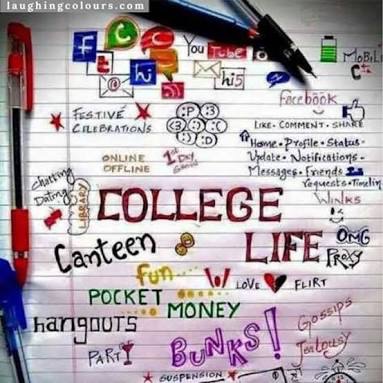 laughingcolours.com
f
You Tube
t
hi
hi5
MOBILE
FESTIVE
CELEBRATIONS
facebook
LIKE - COMMENT - SHARE
Home - Profile - Status -
Update - Notifications -
Messages - Friends
requests - Timeline
ONLINE
OFFLINE
1st DAY
Chatting
Dating
LIBRARY
COLLEGE
WINKS
Canteen
LIFE
OMG
PROXY
fun....
LOVE
FLIRT
POCKET
MONEY
hangouts
BUNKS!
Gossips
Jealousy
PARTY
SUSPENSION